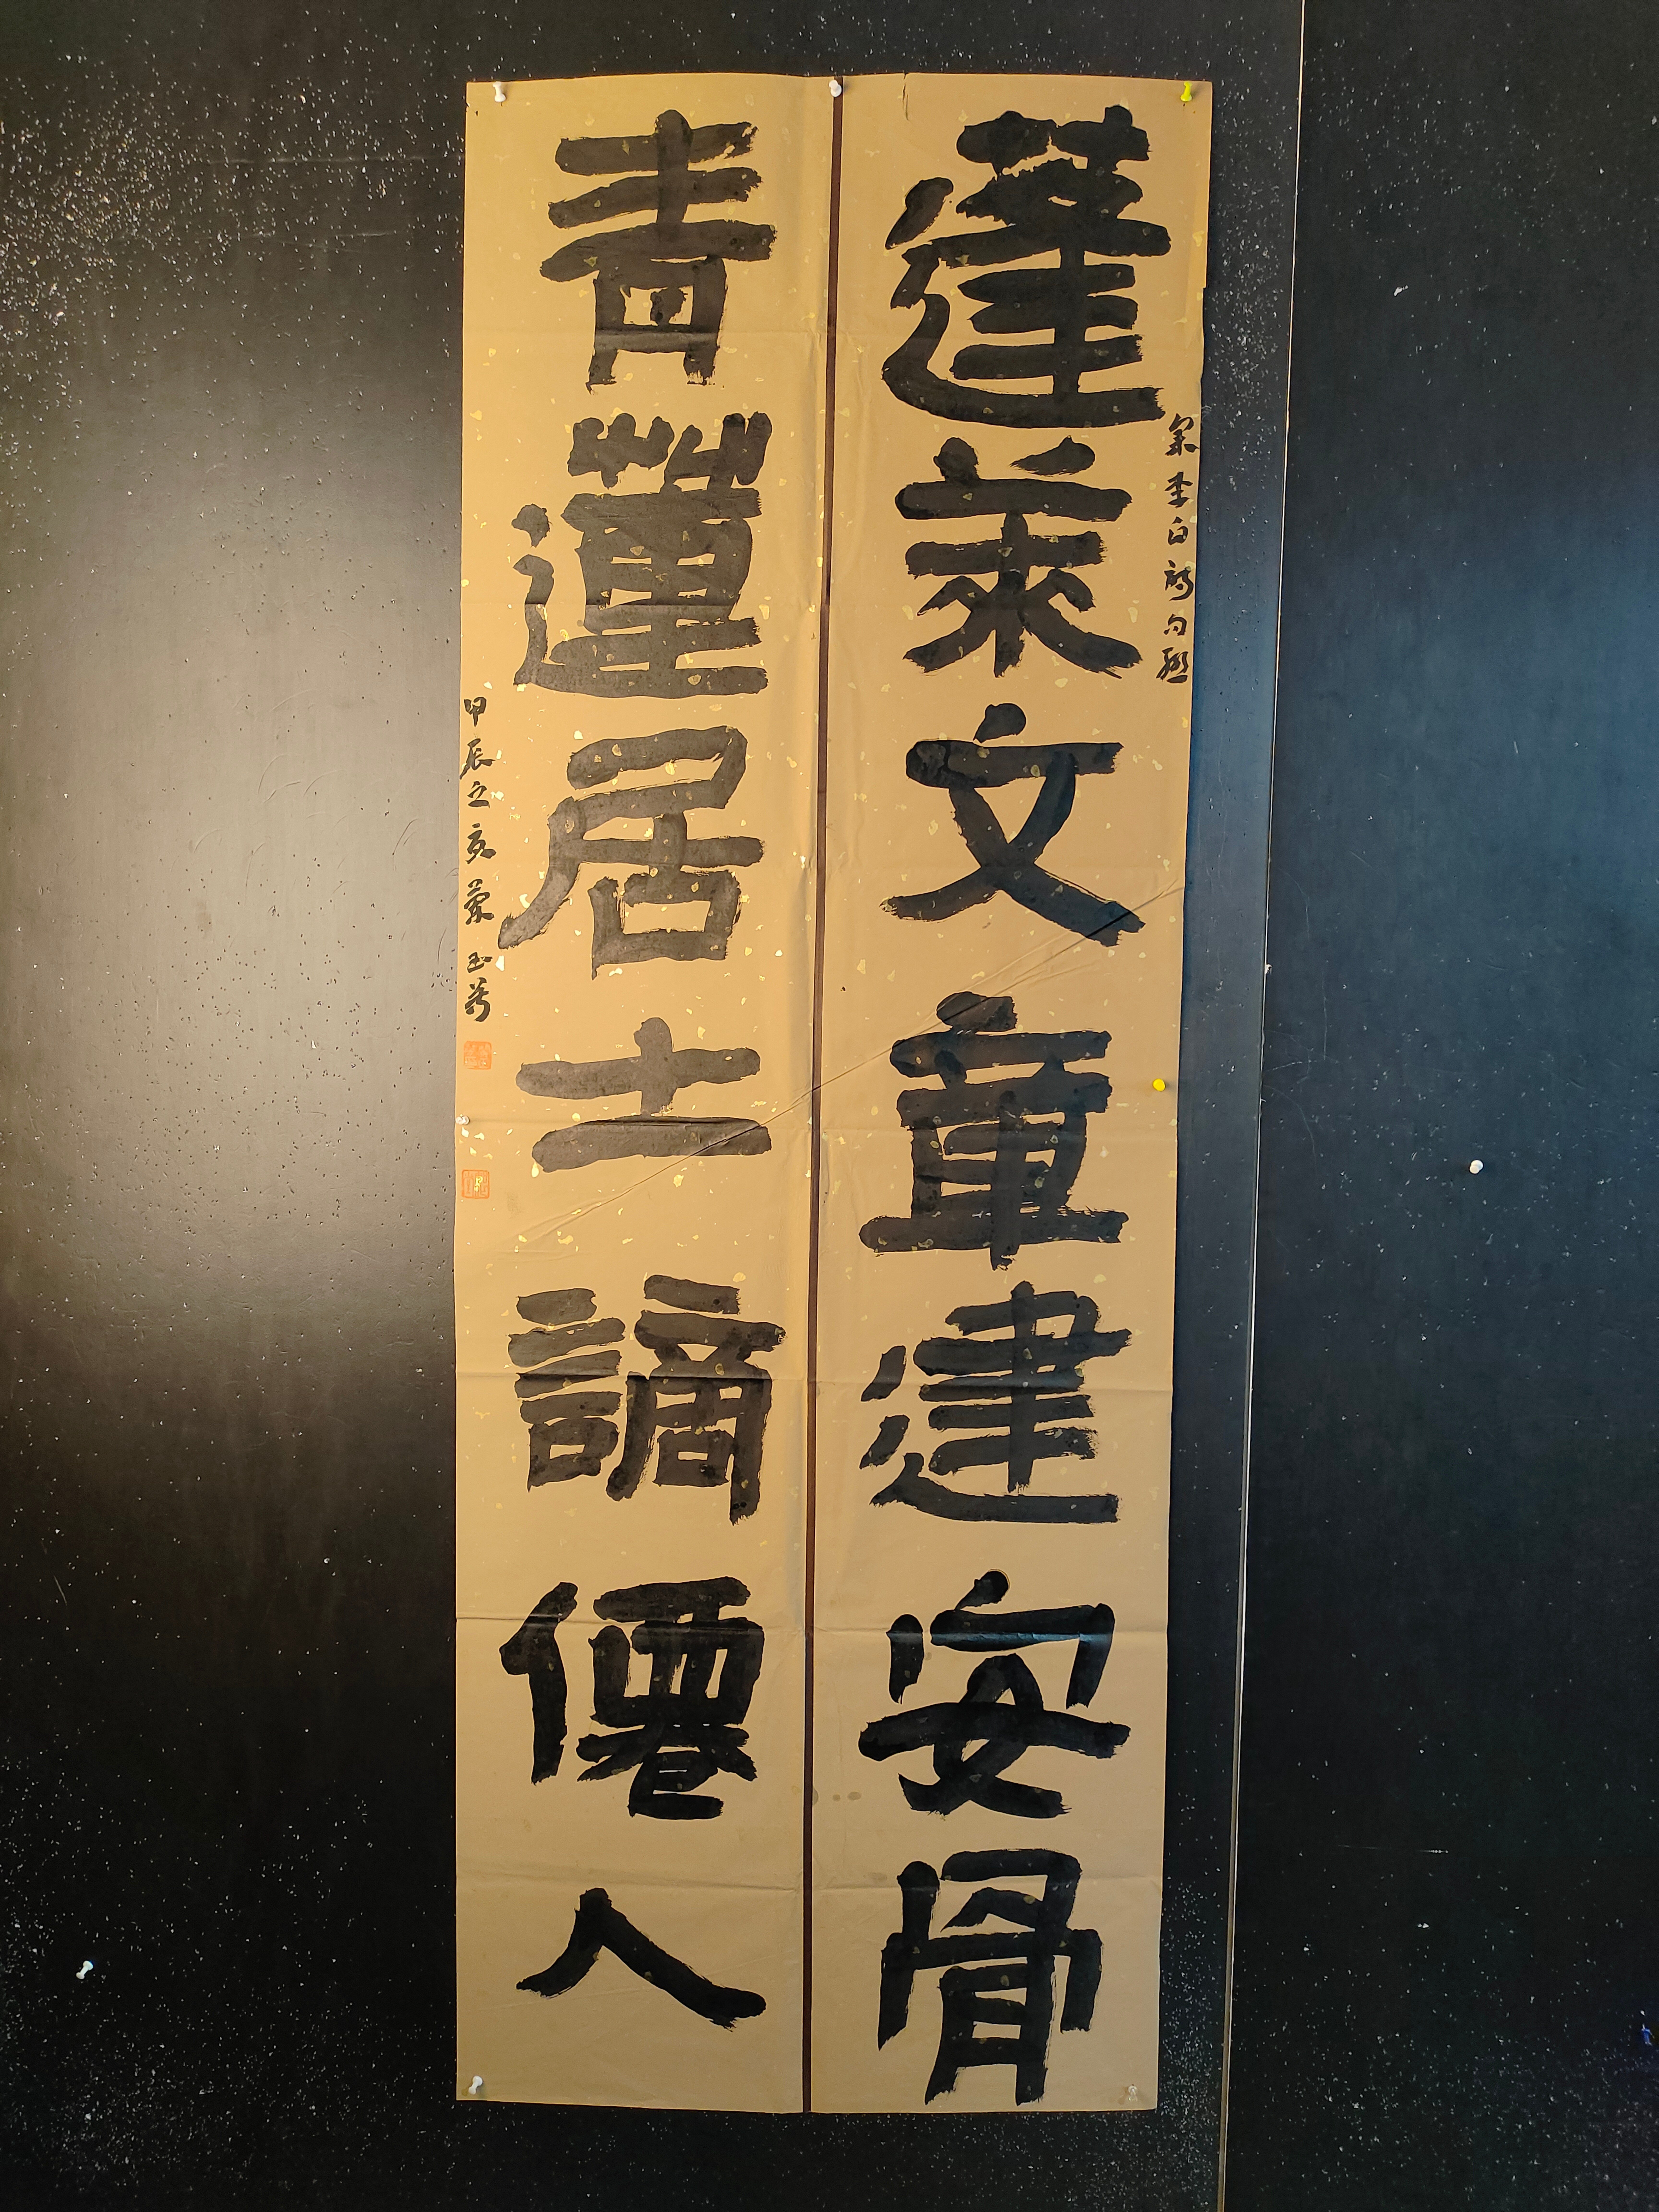 蓬萊文章建安骨
集李白詩句聯
青蓮居士謫僊人
甲辰之亥蒙玉